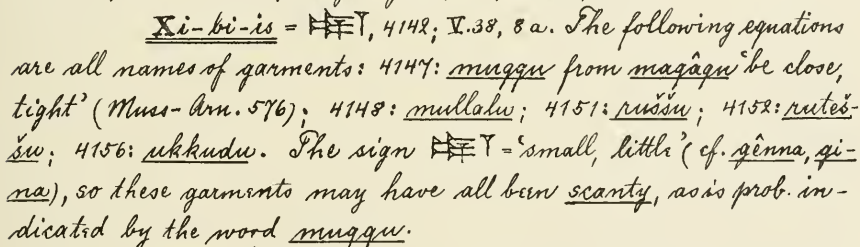 Xi-bi-is = 𒌉𒁹, 4142; V.38, 8a. The following equations
are all names of garments: 4147: muqqu from maqâqu 'be close,
tight' (Muss-Arn. 576); 4148: mullalu; 4151: ruššu; 4152: ruteš-
šu; 4156: ukkudu. The sign 𒌉𒁹 = 'small, little' (cf. gênna, gi-
na), so these garments may have all been scanty, as is prob. in-
dicated by the word muqqu.